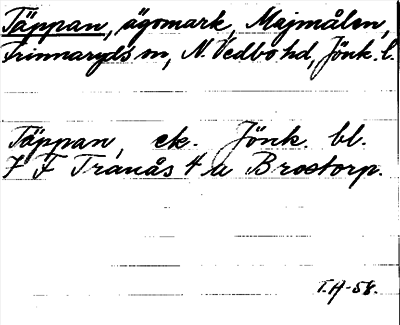 Täppan, ägomark, Majmålen,
Frinnaryds sn, N. Vedbo hd, Jönk. l.
Täppan, ek. Jönk. bl.
7 F Tranås 4 a Brostorp.
T.A-58.